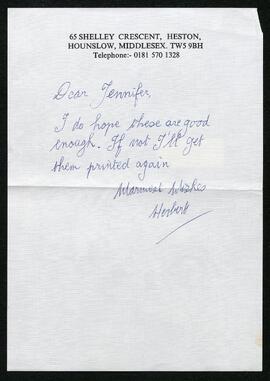 65 SHELLEY CRESCENT, HESTON,
HOUNSLOW, MIDDLESEX. TW5 9BH
Telephone:- 0181 570 1328
Dear Jennifer,
I do hope these are good
enough. If not I'll get
them printed again
Warmest Wishes
Herbert